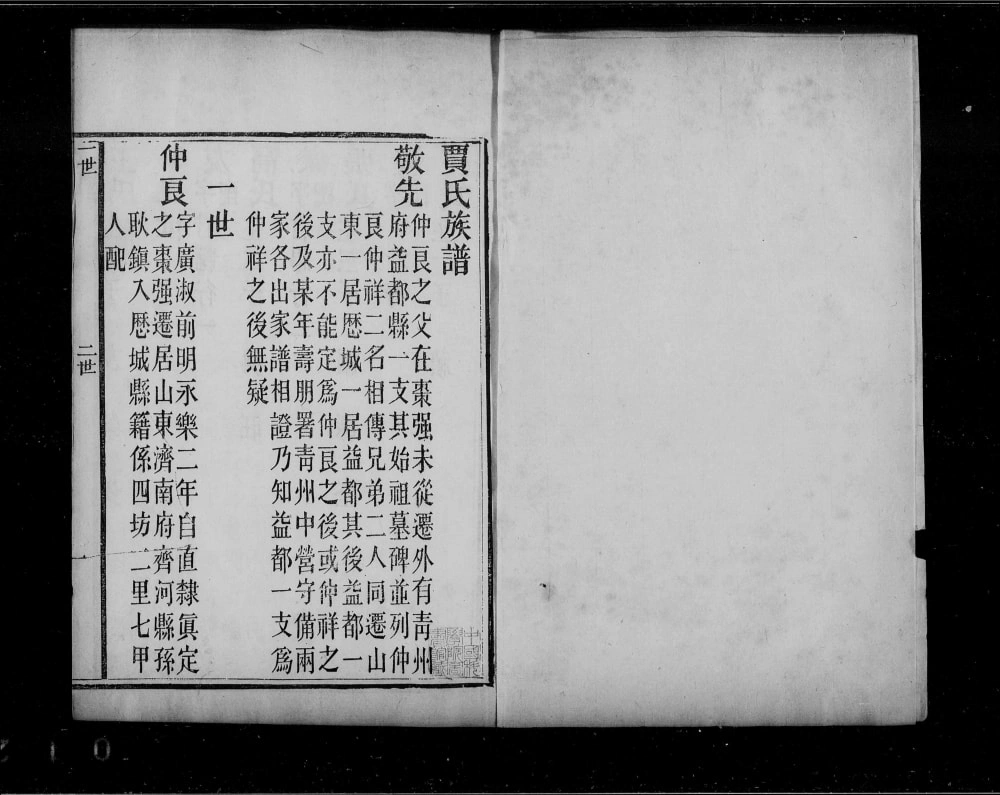 賈氏族譜
敬先
仲艮之父在棗强未從遷外有青州
府益都縣一支其始祖墓碑並列仲
艮仲祥二名相傳兄弟二人同遷山
東一居歴城一居益都其後益都一
支亦不能定爲仲艮之後或仲祥之
後及某年壽朋署青州中營守備兩
家各出家譜相證乃知益都一支爲
仲祥之後無疑
一世
仲艮
字廣淑前明永樂二年自直隸眞定
之棗强遷居山東濟南府齊河縣孫
耿鎭入歴城縣籍係四坊二里七甲
人配
一世
二世
一